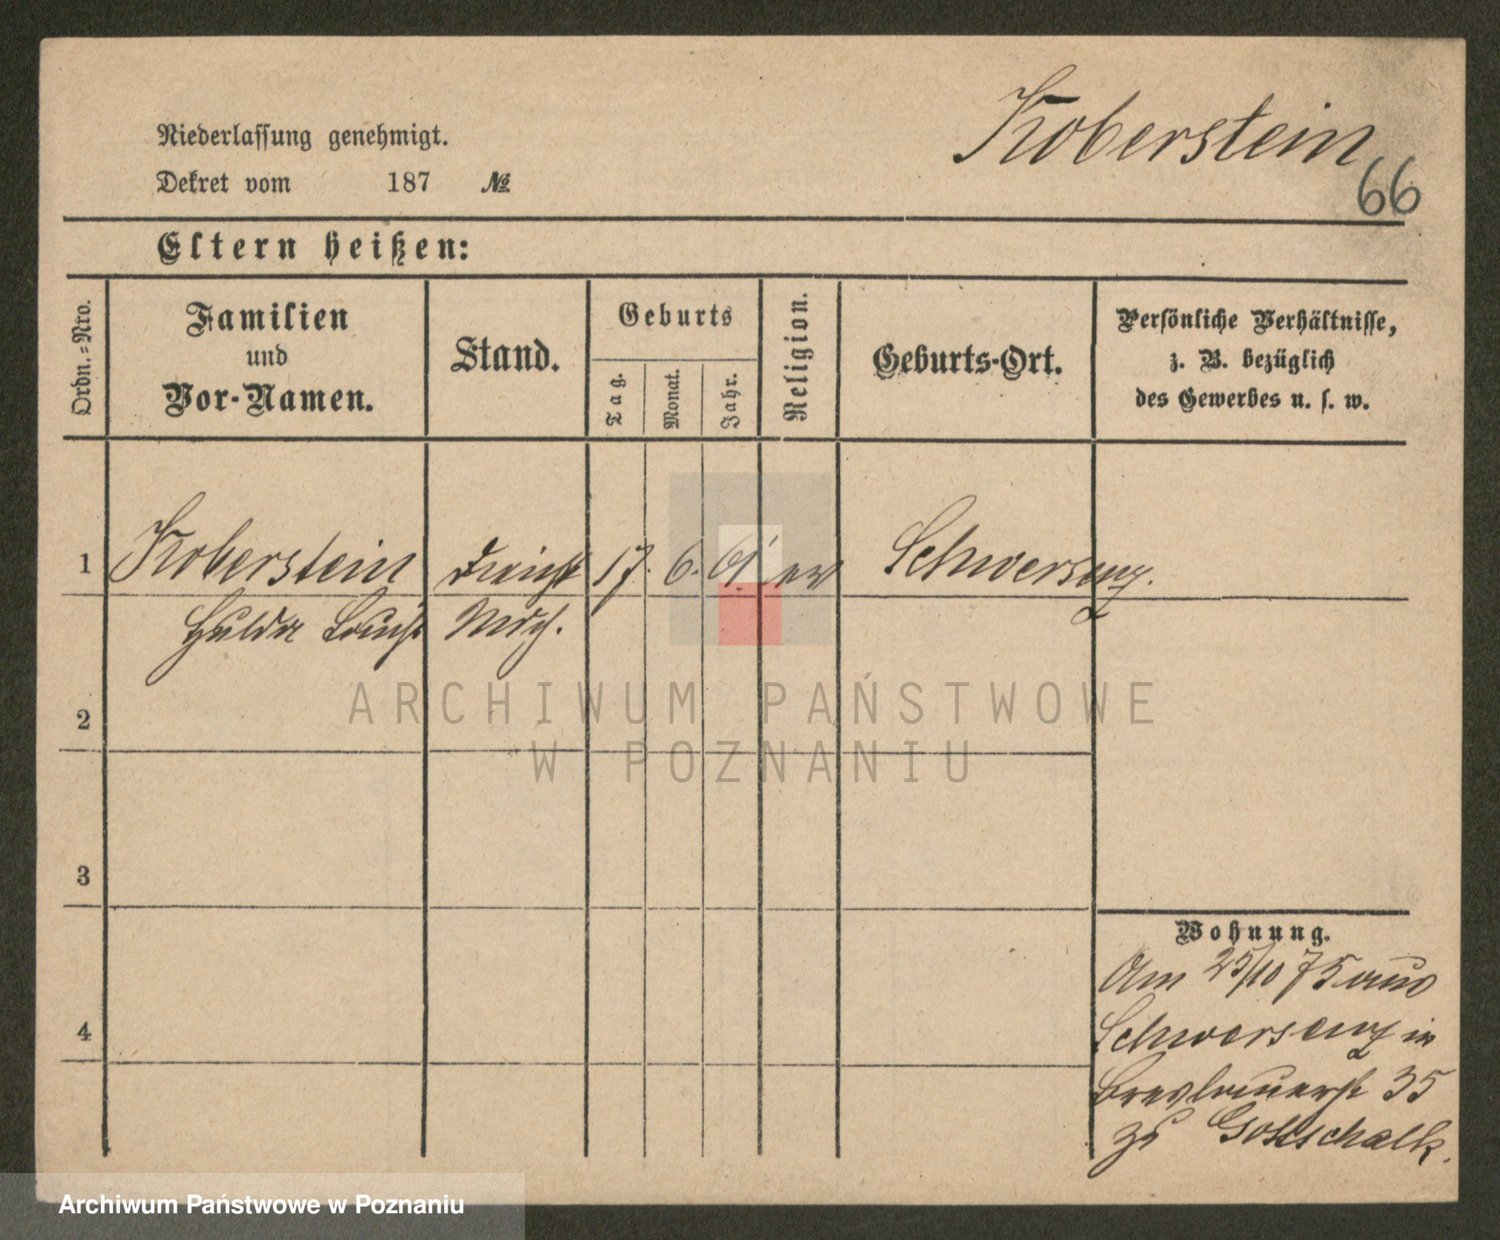 Koberstein
66
Niederlassung genehmigt.
Dekret vom 187 №
Eltern heißen:
Ordn.=Nro.
Familien
und
Vor-Namen.
Stand.
Geburts
Tag.
Monat.
Jahr.
Religion.
Geburts-Ort.
Persönliche Verhältnisse,
z. B. bezüglich
des Gewerbes u. s. w.
1 Koberstein Dienst 17. 6. ev Schwersenz.
Hulda Louise Mdch.
2
3
4
Wohnung.
Am 25/10 75 aus
Schwersenz in
Breslauerstr 35
zu Gottschalk.
ARCHIWUM PAŃSTWOWE
W POZNANIU
Archiwum Państwowe w Poznaniu